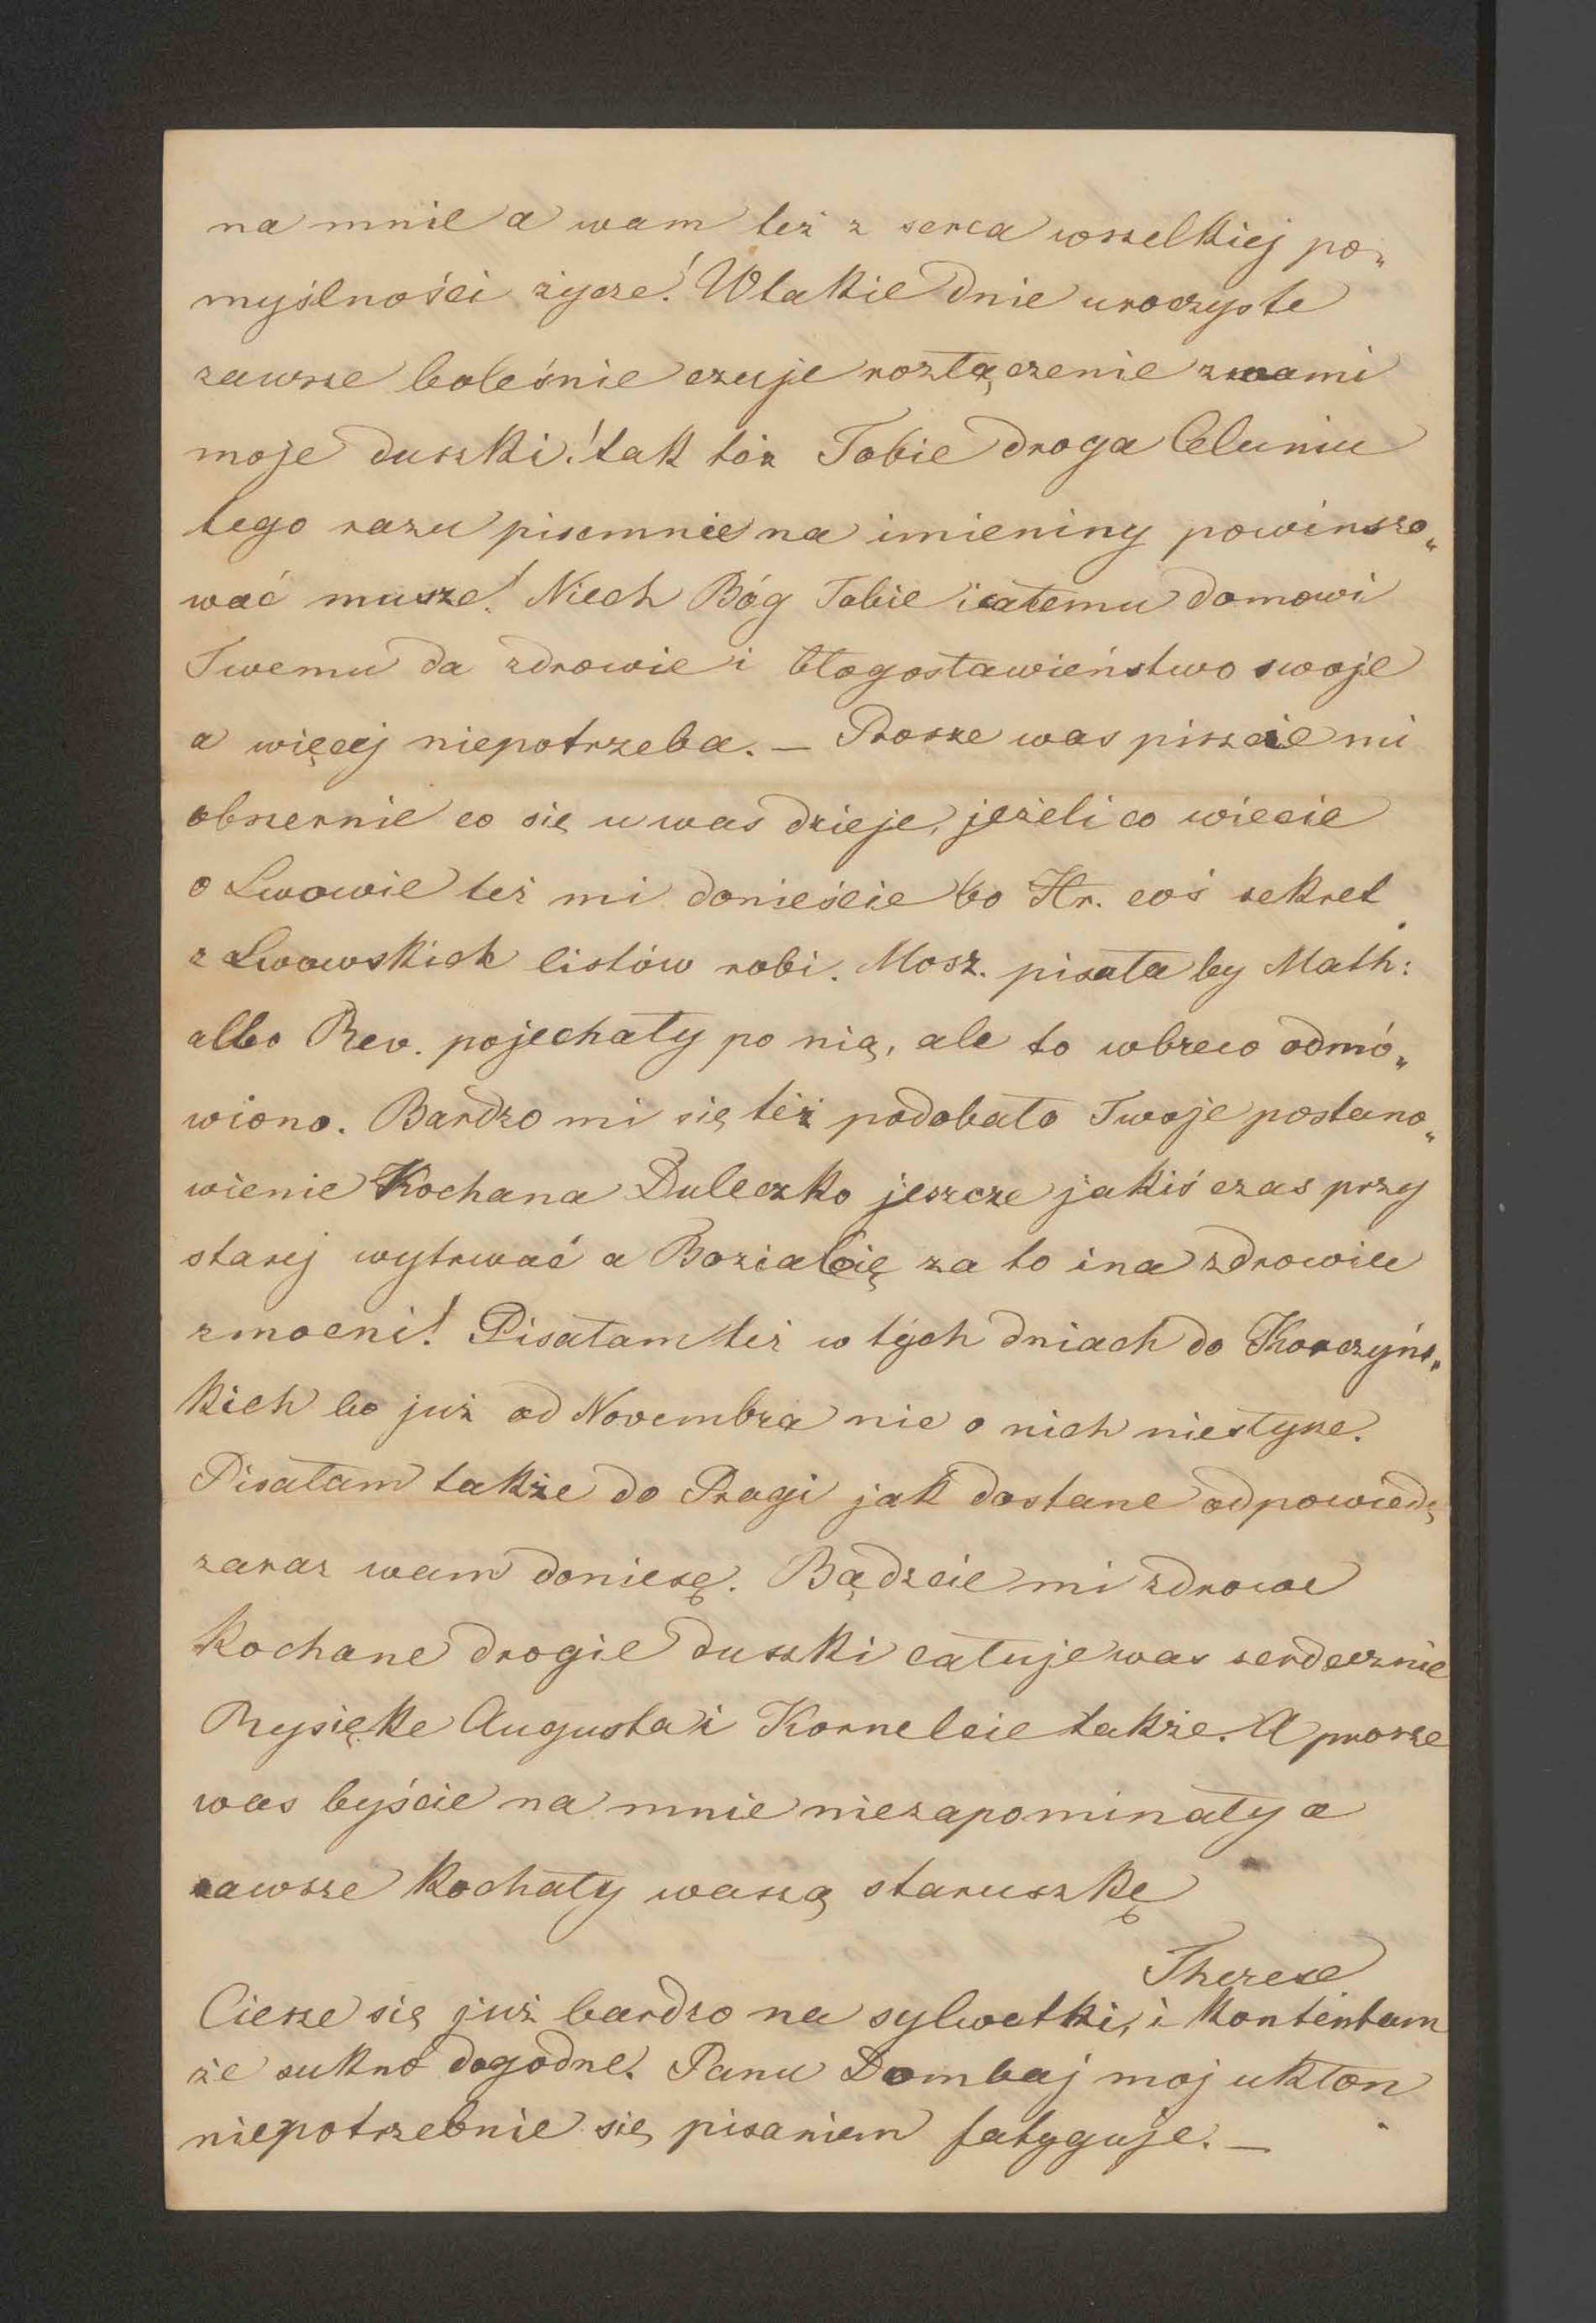 na mnie a wam też z serca wszelkiej po„
myślności życze! W takie dnie uroczyste
zawsze boleśnie czuje rozłączenie z wami
moje duszki! tak tóż Tobie droga Celuniu
tego razu pisemnie na imieniny powinszo„
wać musze! Niech Bóg Tobie i całemu domowi
Twemu da zdrowie i błogosławieństwo swoje
a więcej niepotrzeba. — Prosze was piszcie mi
obszernie co się u was dzieje, jeżeli co wiecie
o Lwowie też mi donieście bo Hr. coś sekret
z Lwowskich listów robi. Mosz. pisała by Math:
albo Rev. pojechały po nią, ale to wbrew odmó„
wiono. Bardzo mi się też podobało Twoje postano„
wienie Kochana Duleczko jeszcze jakiś czas przy
starej wytrwać a Bozia Cię za to i na zdrowiu
zmocni! Pisałam też w tých dniach do Korczyńs„
kich bo już od Novembra nic o nich niesłysze.
Pisałam także do Pragi jak dostane odpowiedź
zaraz wam doniesę. Bądzcie mi zdrowe
Kochane drogie duszki całuje was serdecznie
Rysięke Augusta i Kornelcie także. A prosze
was byście na mnie niezapominały a
zawsze Kochały waszą staruszkę
Therese
Ciesze się już bardzo na sylwetki, i kontentam
że sukno dogodne. Panu Dombaj moj ukłon
niepotrzebnie się pisaniem fatyguje. —